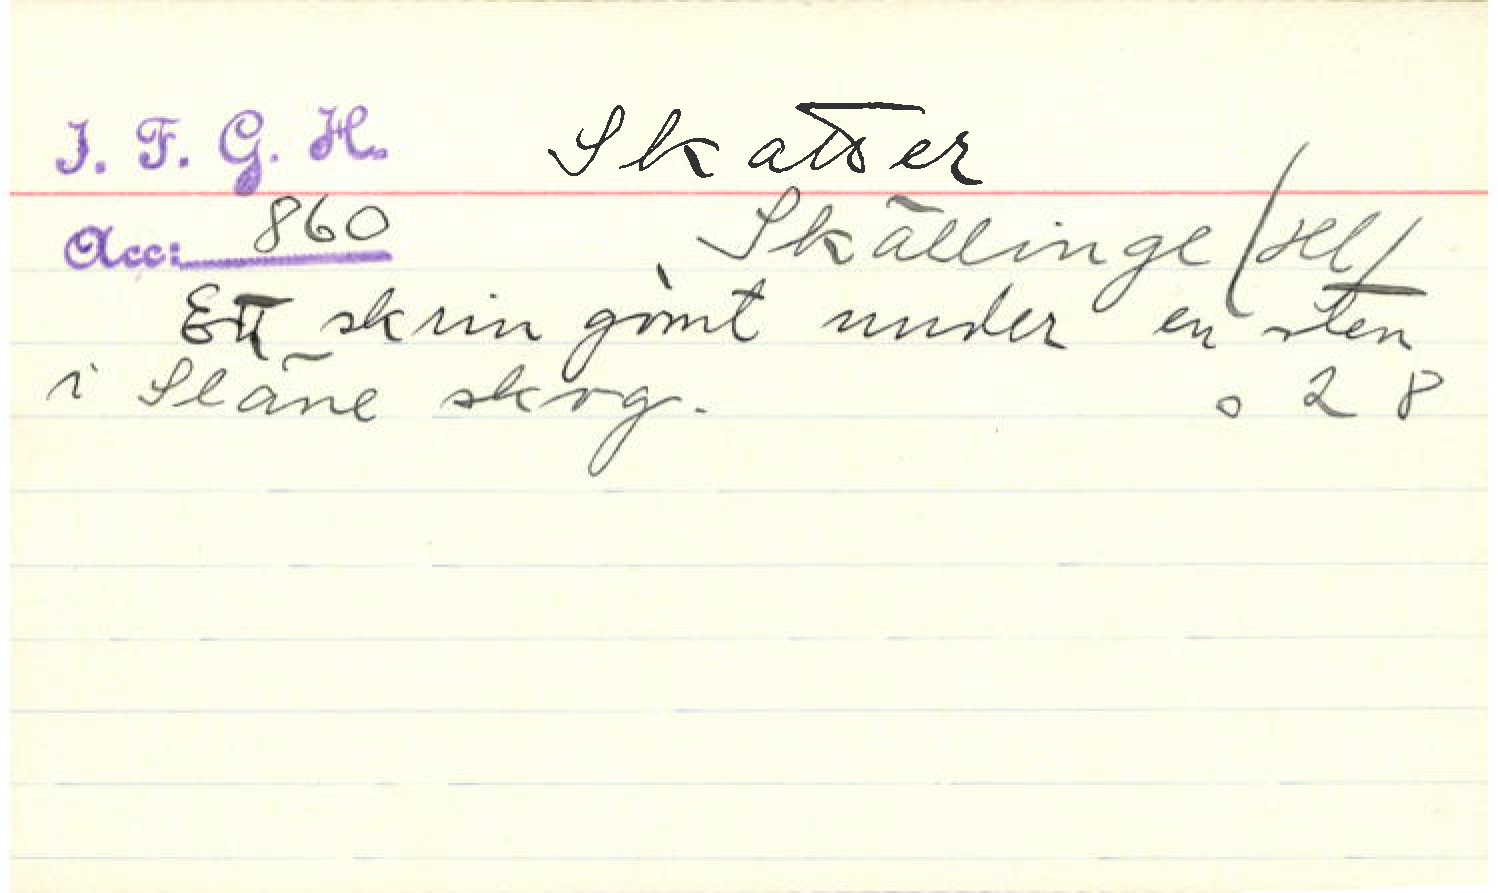 I. F. G. H. Skatter
Acc: 860 Skällinge (Hl)
Ett skrin gömt under en sten
i Släne skog. s 28